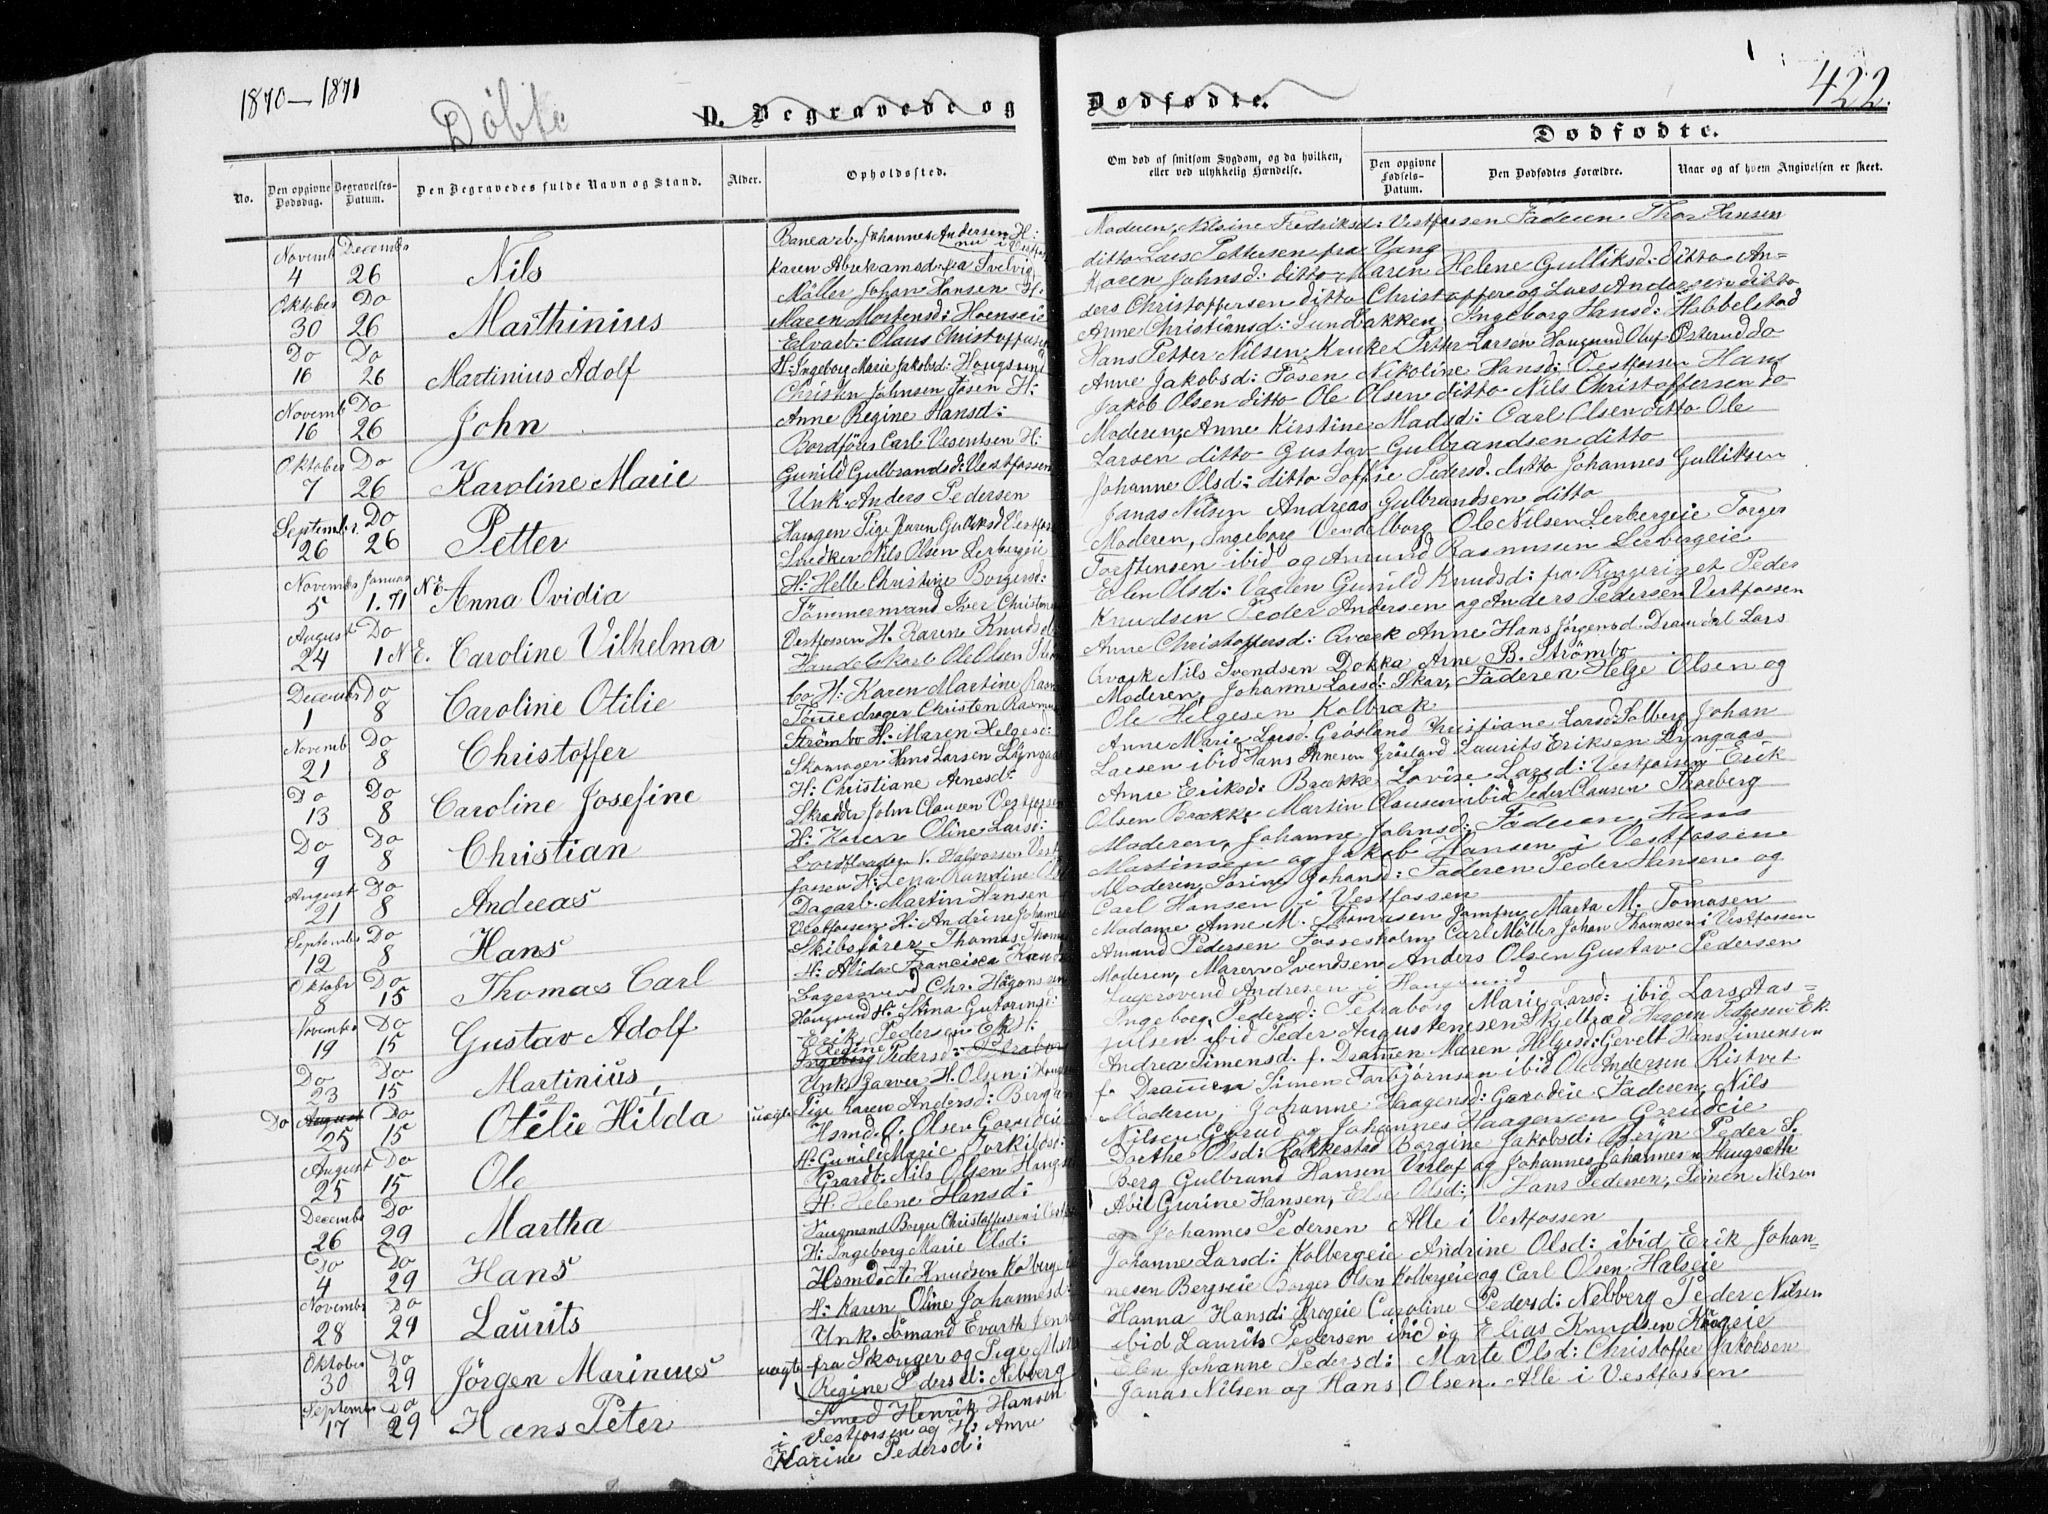 1870—1871
422.
Døbte
D. Begravede og Dødfødte.
Dødfødte.
No.
Den opgivne Dødsdag.
Begravelses-Datum.
Den Begravedes fulde Navn og Stand.
Alder.
Opholdssted.
Om død af smitsom Sygdom, og da hvilken, eller ved ulykkelig Hændelse.
Den opgivne Fødsels-Datum.
Den Dødfødtes Forældre.
Naar og af hvem Angivelsen er skeet.
Novemb 4 Decembr 26 Nils
Oktober 30 Do 26 Marthinius
Do 16 Do 26 Martinius Adolf
Novemb 16 Do 26 John
Oktober 7 Do 26 Karoline Marie
Septembr. 26 Do 26 Petter
Novembr 5 Januar 1.71 N.E. Anna Ovidia
August 24 Do 1 N.E. Caroline Vilhelma
December 1 Do 8 Caroline Otilie
Novemb 21 Do 8 Christoffer
Do 13 Do 8 Caroline Josefine
Do 9 Do 8 Christian
August 21 Do 8 Andreas
September 12 Do 8 Hans
Oktobr 8 Do 15 Thomas Carl
November 19 Do 15 Gustav Adolf
Do 23 Do 15 Martinius
Do August 25 Do 15 Otilie Hilda uægte
August 25 Do 15 Ole
Decembr 26 Do 29 Martha
Do 4 Do 29 Hans
Novembr 28 Do 29 Laurits
Oktober 30 Do 29 Jörgen Marinius uægte
Septembr 17 Do 29 Hans Peter
Banearb. Johannes Andersen H:
nu i Vestfos
Karen Abrahamsd: fra Svelvig
Möller Johan Hansen H:
Maren Mortensd: Hoenseie
Elvearb: Olaus Christoffersen
H: Ingeborg Marie Jakobsd: Hougsund
Christen Johnsen Fosen H:
Anne Regine Hansd:
Bordförer Carl Vesentsen H:
Gunild Gulbrandsd: Vestfossen
Unk. Anders Pedersen
Haugen Pige Karen Gulliksd Vestfos
Snedker Nils Olsen Lerbergeie
H: Helle Christine Borgersd:
Tömmermand Iver Christens
Vestfossen H. Karen Knudsd
Handelskarl Ole Olsen
H: Karen Martine
Tömmedrager Christen Rasmus
Strömbo H: Maren Helgesd:
Skomager Hans Larsen Lyngaas
H: Christiane Arnesd:
Skrædder John Clausen Vestfossen
H: Karen Oline Larsd:
Halvorsen Vest
fossen H: Lena Randine
Dagarb. Martin Hansen
Vestfossen H: Andrine Johanne
Skibsförer Thomas Thom
H: Alida Francisca
Lagersvend Chr. Hagonsen
Hougsund H: Stina Guttormsd:
Erik Pedersen Ek H:
Regine
Ingeborg Pedersd:
Unk. Garver H. Olsen i Hougs
Pige Karen Andersd: Berg
Hsmd. O. Olsen Gorudeie
H: Gunild Marie Torkilds:
Gaardb: Nils Olsen Haugs
H: Helene Hansd:
Saugmand Borger Christoffersen i Vestf
H: Ingeborg Marie Olsd:
Hsmd. Knudsen Kolbergeie
H: Karen Oline Johannesd:
Unk. Sömand Evarth Jens
fra Skouger og Pige
Regine Pedersd: Nebberg
Smed Henrik Hansen
i Vestfossen og H: Anne
Karine Pedersd:
Moderen, Nilsine Fredriksd: Vestfossen Faderen Thor Hansen
ditto Lars Pettersen fra
Karen Johnsd: ditto Maren Helene Gulliksd: ditto An-
ders Christoffersen ditto Christoffer og Lars Andersen ditto
Anne Christiansd: Sundbakken Ingeborg Hansd: Habbelstad
Hans Petter Nilsen Kruke Petter Larsen Hougsund Oluf Österud do
Anne Jakobsd: Fosen Nikoline Hansd: Vestfossen Hans
Jakob Olsen ditto Ole Olsen ditto Nils Christoffersen do
Moderen, Anne Kirstine Madsd: Carl Olsen ditto Ole
Larsen ditto Gustav Gulbrandsen ditto
Johanne Olsd: ditto Soffie Pedersd. ditto Johannes Gulliksen
Jonas Nilsen Andreas Gulbrandsen ditto
Moderen, Ingeborg Vendelborg Ole Nilsen Lerbergeie Torger
Torstensen ibid og Amund Rasmussen Lerbergeie
Elen Olsd: Gunild Knudsd: fra Ringeriget Peder
Knudsen Peder Andersen og Anders Pedersen Vestfossen
Anne Christoffersd: Qværk Anne Hans Jörgensd. Lars
Qværk Nils Svendsen Dokka Arne B. Strömbo
Moderen, Johanne Larsd: Skar, Faderen Helge Olsen og
Ole Helgesen Kolbræk
Anne Marie Larsd: Grösland Christiane Larsd: Solberg Johan
Larsen ibid Hans Arnesen Grösland Laurits Eriksen Lyngaas
Anne Eriksd: Brække Lovise Larsd: Vestfossen Erik
Olsen Brække Martin Clausen ibid Peder Clausen Thorberg
Moderen, Johanne Johnsd: Faderen, Hans
Martinsen og Jakob Hansen i Vestfossen
Moderen Sorine Johansd: Faderen Peder Hansen og
Carl Hansen i Vestfossen
Madame Anne M. Thomasen Jomfru Marta M. Tomasen
Amund Pedersen Fossesholm Carl Möller Johan Thomasen i Vestfossen
Moderen, Maren Svendsen Anders Olsen Gustav Pedersen
Lagersvend Andresen i Hougsund
Ingeborg Pedersd: Petraborg Marie Larsd: ibid Lars As-
julsen ibid Peder Augustensen Skjelbræd Haagen Helgesen Ek
Andrea Simensd. f. Drammen Maren Helgesd: Gevelt Hans Simensen
f. Drammen Simen Torbjörnsen ibid Ole Andersen Ristvet
Moderen, Johanne Haagensd: Gorudeie Faderen, Nils
Nilsen Gorud og Johannes Haagensen Gorudeie
Dorthe Olsd: Bakkestad Borgine Jakobsd: Peder S.
Berg Gulbrand Hansen og Johannes Johannesen Haugsæth
Abil Gurine Hansen, Else Olsd: Hans Pedersen, Simen Nilsen
og Johannes Pedersen Alle i Vestfossen
Johannes Larsd: Kolbergeie Andrine Olsd: ibid Erik Johan-
nesen Bergseie Borger Olsen Kolbergeie og Carl Olsen Halseie
Hanna Hansd: Krogeie Caroline Pedersd: Nebberg Peder Nilsen
ibid Laurits Pedersen ibid og Elias Knudsen Krogeie
Elen Johanne Pedersd: Marte Olsd: Christoffer Jakobsen
Jonas Nilsen og Hans Olsen. Alle i Vestfossen